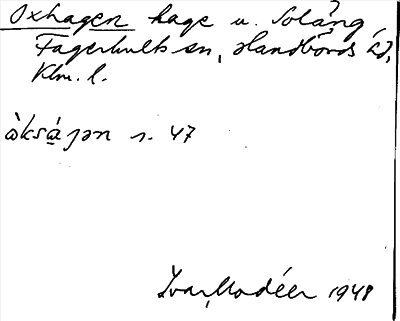 Oxhagen hage u. Soläng,
Fagerhults sn, Handbörds hd,
Klm. l.
òksáɡən s. 47
Ivar Modéer 1948